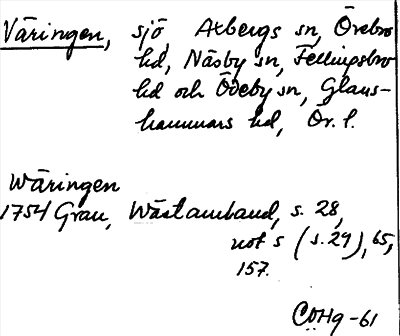 Väringen, sjö, Axbergs sn, Örebro
hd, Näsby sn, Fellingsbro
hd och Ödeby sn, Glans-
hammars hd, Ör. l.
Wäringen
1754 Grau, Wästanland, s. 28,
not s (s. 29), 65,
157.
COHg-61